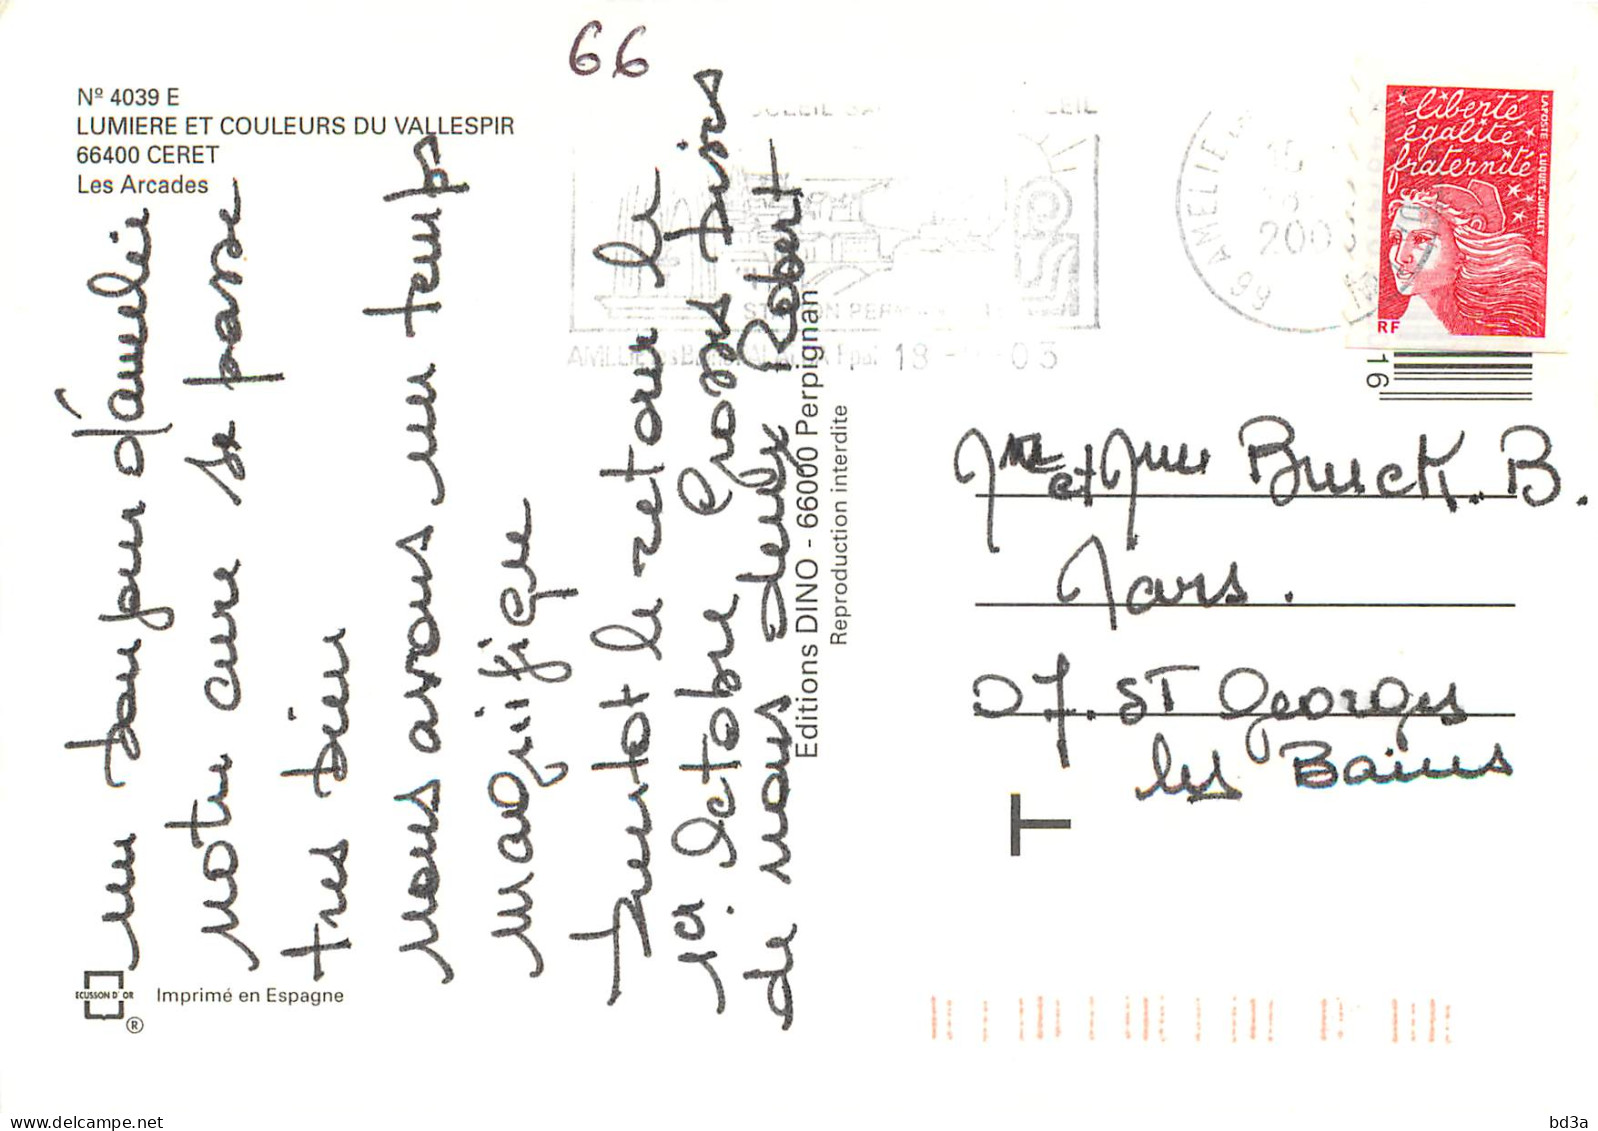 66
Nº 4039 E
LUMIERE ET COULEURS DU VALLESPIR
66400 CERET
Les Arcades
un bonjour d'amélie
notre cure se passe
tres bien
nous avons un temps
magnifique
bientot le retour le
1er octobre Gross bises
de nous deux Robert
Editions DINO - 66000 Perpignan
Reproduction interdite
SOLEIL
STATION
18 - 03
66 AMELIE
200
liberté
égalité
fraternité
LAPOSTE LUQUET.JUMELET
RF
16
Mr et Mme Buick. B.
Jars.
07. ST Georges
les Bains
T
ECUSSON D'OR
®
Imprimé en Espagne
delcampe.net
bd3a